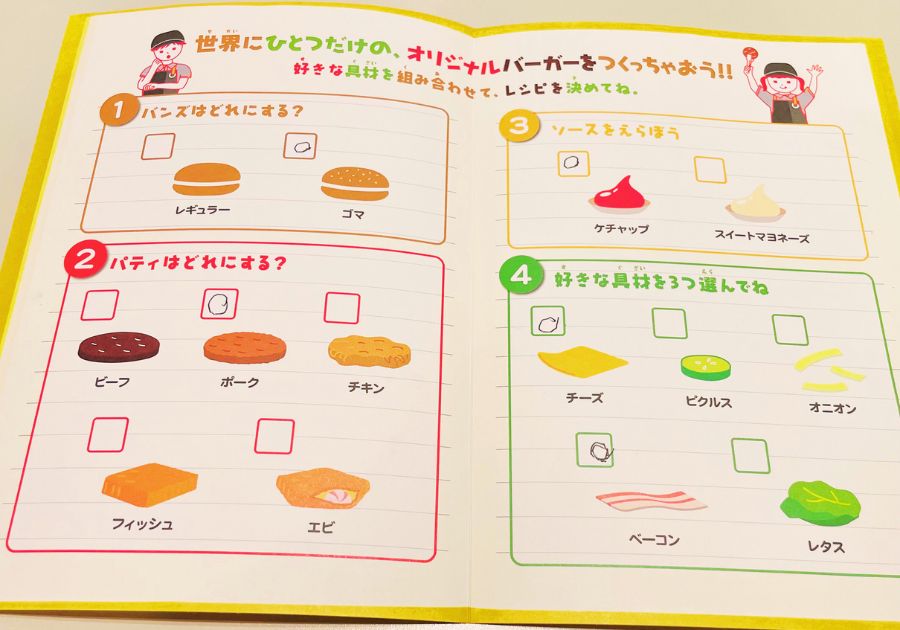 世界にひとつだけの、オリジナルバーガーをつくっちゃおう!!
好きな具材を組み合わせて、レシピを決めてね。
1 バンズはどれにする?
レギュラー ゴマ
2 パティはどれにする?
ビーフ ポーク チキン
フィッシュ エビ
3 ソースをえらぼう
ケチャップ スイートマヨネーズ
4 好きな具材を3つ選んでね
チーズ ピクルス オニオン
ベーコン レタス